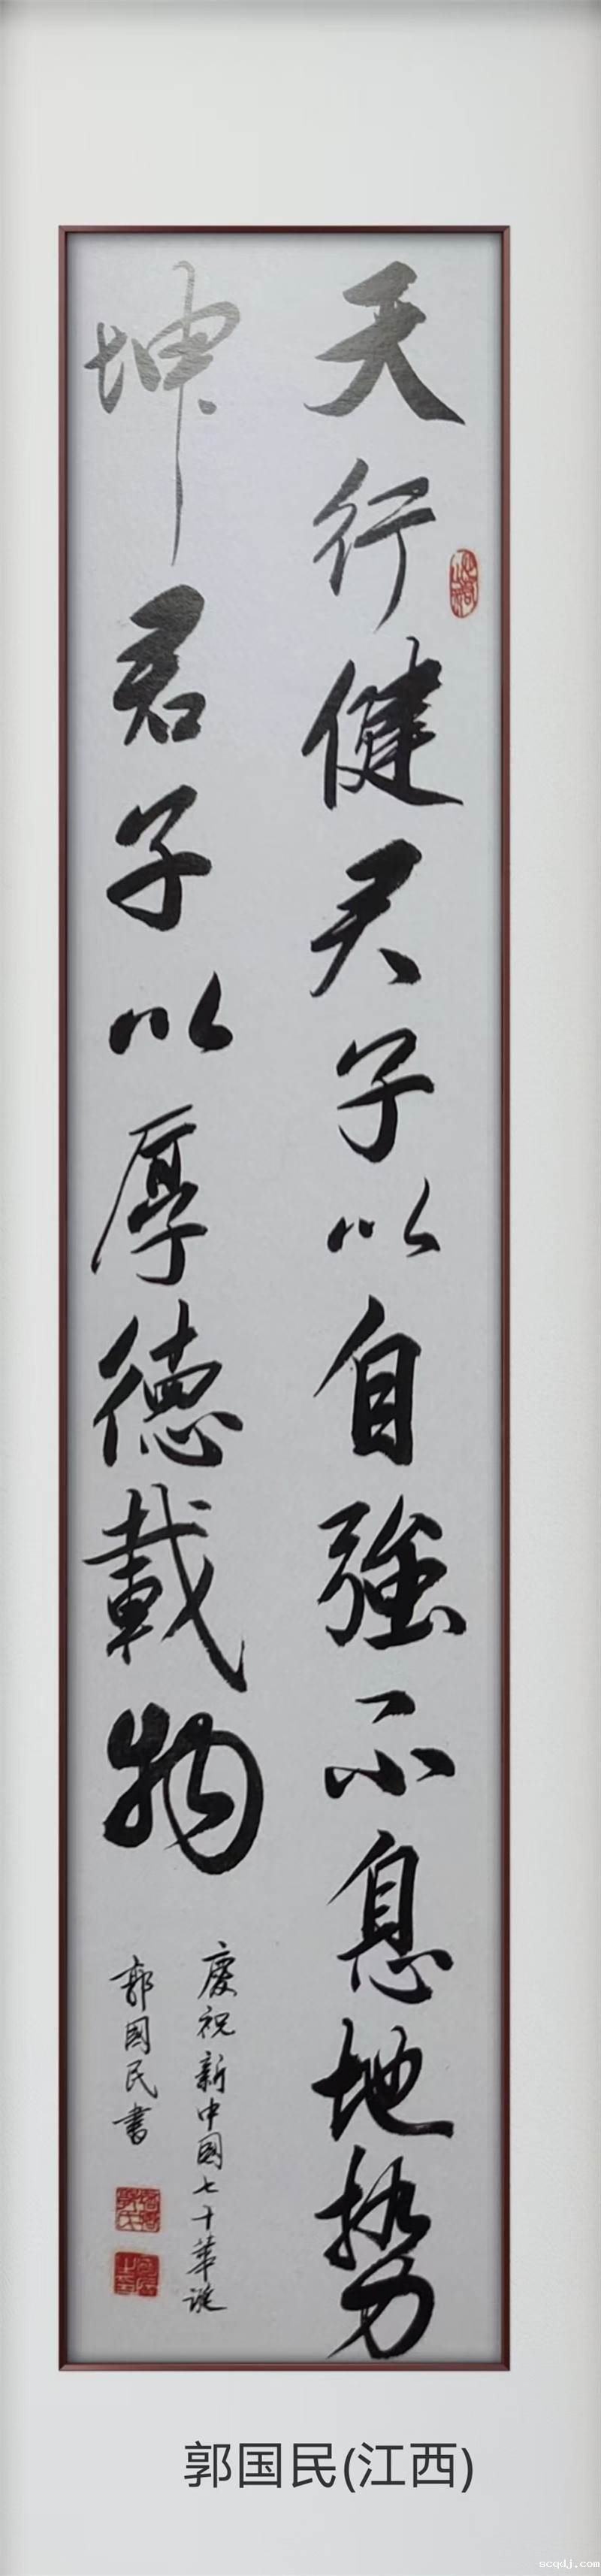 天行健君子以自強不息地势
坤君子以厚德載物
慶祝新中國七十華誕
郭國民書
郭国民(江西)
scqdj.com